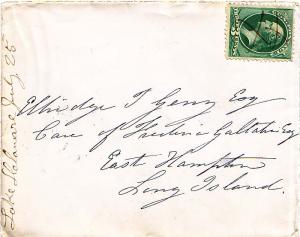 Elbridge T Gerry Esq
Care of Frederic Gallatin Esq
East Hampton
Long Island.
Lake July 25